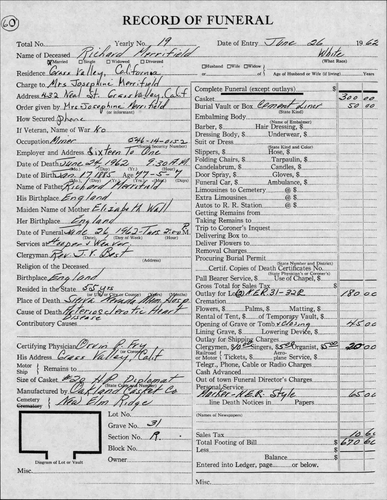 60
RECORD OF FUNERAL
Total No. Yearly No. 19 Date of Entry June 26 1962
Name of Deceased Richard Merrifield White
Married Single Widowed Divorced (What Race)
Residence Grass Valley, California Husband Wife Widow or Age of Husband or Wife (if living) Years
Charge to Mrs Josephine Merrifield
Address 432 Neal St. Grass Valley, Calif
Order given by Mrs Josephine Merrifield
How Secured phone
If Veteran, Name of War No
Occupation Miner 546-14-0152
Employer Sixteen To One
Date of Death June 24, 1962 9:30 A.M.
Date of Birth Age 77-5-7
Name of Father Richard Merrifield
His Birthplace England
Maiden Name of Mother Elizabeth Wall
Her Birthplace England
Date of Funeral June 26, 1962 Tues 2:00 P.
Services at Hooper & Weaver
Clergyman Rev. J. F. Best
Religion of the Deceased
Birthplace England
Resided in the State 55 yrs
Place of Death Sierra Nevada Mem. Hosp
Cause of Death Arteriosclerotic Heart
Disease
Contributory Causes
Certifying Physician Orem P. Fry
His Address Grass Valley Calif
Motor
Ship Remains
Size of Casket H.P. Diplomat
Manufactured by Oakland Casket Co
Cemetery
Crematory New Elm Ridge
Lot No.
Grave No. 31
Section No. R.
Block No.
Owner
Diagram of Lot or Vault
Misc.
Complete Funeral (except outlays) $
Casket 300 00
Burial Vault or Box Cement Liner 50 00
(State Kind)
Embalming Body
(Name of Embalmer)
Barber, Hair Dressing,
Dressing Body, Underwear,
Suit or Dress
(State Kind and Color)
Slippers, Hose,
Folding Chairs, Tarpaulin,
Candelabrum, Candles,
Door Spray, Gloves,
Funeral Car, Ambulance,
Limousines to Cemetery @ $
Extra Limousines @ $
Autos to R. R. Station @ $
Getting Remains from
Taking Remains to
Trip to Coroner's Inquest
Delivering Box to
Deliver Flowers to
Removal Charges
Procuring Burial Permit
(State Number and District)
Certif. Copies of Death Certificates No.
(State Physician's or Coroner's)
Pall Bearer Service, Use of Chapel,
Gross Total for Sales Tax
Outlay for Lot N.E.R. 31-32 R 180 00
Cremation
Flowers, Palms, Matting,
Rental of Tent, of Temporary Vault,
Opening of Grave or Tomb closing 45 00
Lining Grave, Lowering Device,
Outlay for Shipping Charges
Clergyman, Singers, Organist, 20 00
Railroad
or
Motor Tickets, Aero-plane Service,
Teleg., Phone, Cable or Radio Charges
Cash Advanced
Out of town Funeral Director's Charges
Personal Service
Marker - N.E.R. Style 65 00
line Death Notices in Papers
(Names of Newspapers)
Sales Tax
Total Footing of Bill $
Less
Balance
Entered into Ledger, page or below.
Misc.